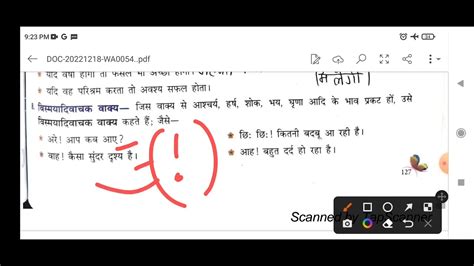 9:23 PM
DOC-20221218-WA0054..pdf
* यदि वर्षा होगी तो फसल भी अच्छी होगी।
* यदि वह परिश्रम करता तो अवश्य सफल होता।
मिलेगी।
विस्मयादिवाचक वाक्य— जिस वाक्य से आश्चर्य, हर्ष, शोक, भय, घृणा आदि के भाव प्रकट हों, उसे
विस्मयादिवाचक वाक्य कहते हैं; जैसे—
* अरे! आप कब आए?
* छिः छिः! कितनी बदबू आ रही है।
* वाह! कैसा सुंदर दृश्य है।
* आह! बहुत दर्द हो रहा है।
(!)
127
Scanned by TapScanner